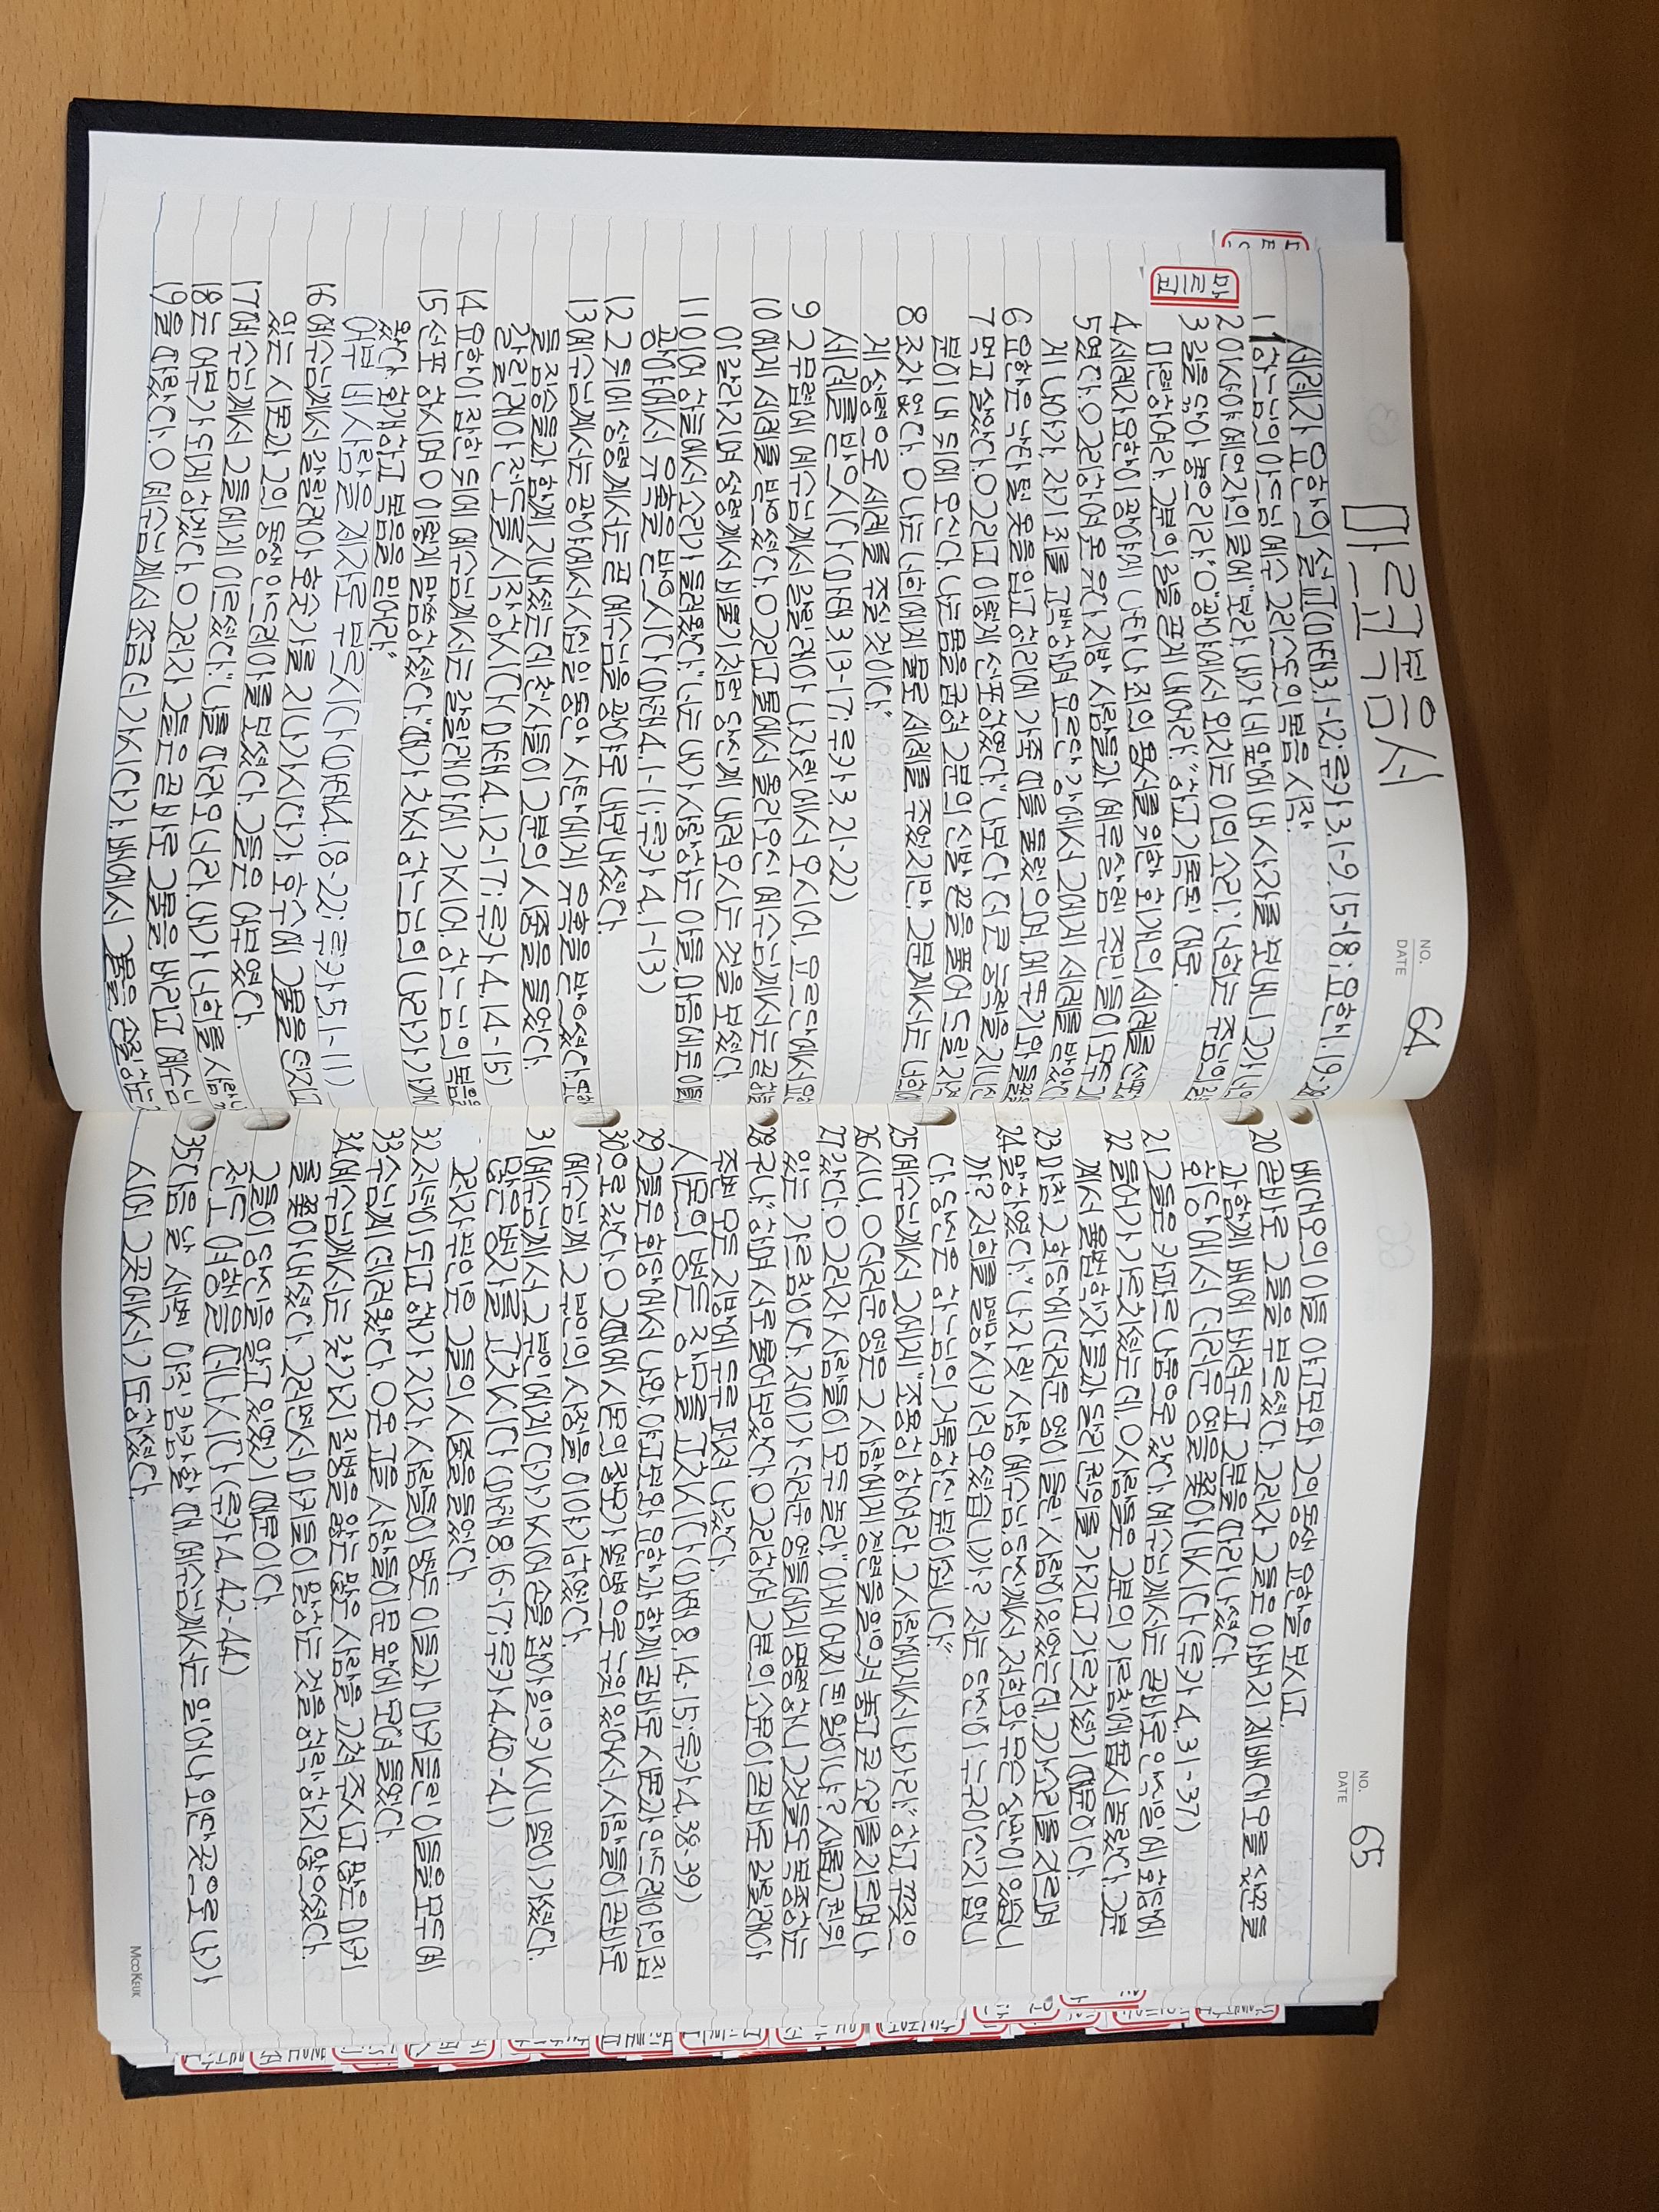 NO. 64
DATE
마르코복음서
마르코
세례자 요한의 설교 (마태3,1-12; 루카3,1-9.15-18; 요한1,19-28
1 1하느님의 아드님 예수 그리스도의 복음 시작.
2 이사야 예언자의 글에 "보라, 내가 네 앞에 내 사자를 보내니 그가 너의
3 길을 닦아 놓으리라." ㅇ "광야에서 외치는 이의 소리. '너희는 주님의 길을
마련하여라. 그분의 길을 곧게 내어라.'" 하고 기록된 대로.
4 세례자 요한이 광야에 나타나 죄의 용서를 위한 회개의 세례를 선포
5 였다. ㅇ 그리하여 온 유다 지방 사람들과 예루살렘 주민들이 모두 그
게 나아가, 자기 죄를 고백하며 요르단 강에서 그에게 세례를 받았다
6 요한은 낙타 털 옷을 입고 허리에 가죽 띠를 둘렀으며, 메뚜기와 들꿀을
7 먹고 살았다. ㅇ 그리고 이렇게 선포하였다. "나보다 더 큰 능력을 지니신
분이 내 뒤에 오신다. 나는 몸을 굽혀 그분의 신발 끈을 풀어 드릴 자격
8 조차 없다. ㅇ 나는 너희에게 물로 세례를 주었지만 그분께서는 너희에
게 성령으로 세례를 주실 것이다."
세례를 받으시다 (마태3,13-17; 루카3,21-22)
9 그 무렵에 예수님께서 갈릴래아 나자렛에서 오시어, 요르단에서 요한
10 에게 세례를 받으셨다. ㅇ 그리고 물에서 올라오신 예수님께서는 곧 하늘
이 갈라지며 성령께서 비둘기처럼 당신께 내려오시는 것을 보셨다.
11 이어 하늘에서 소리가 들려왔다. "너는 내가 사랑하는 아들, 마음에 드는 아들이다
광야에서 유혹을 받으시다 (마태4,1-11; 루카4,1-13)
12 그 뒤에 성령께서는 곧 예수님을 광야로 내보내셨다.
13 예수님께서는 광야에서 사십일 동안 사탄에게 유혹을 받으셨다. 또한
들짐승들과 함께 지내셨는데 천사들이 그분의 시중을 들었다.
갈릴래아 전도를 시작하시다 (마태4,12-17; 루카4,14-15)
14 요한이 잡힌 뒤에 예수님께서는 갈릴래아에 가시어, 하느님의 복음을
15 선포하시며 ㅇ 이렇게 말씀하셨다. "때가 차서 하느님의 나라가 가까이
왔다. 회개하고 복음을 믿어라."
어부 네 사람을 제자로 부르시다 (마태4,18-22; 루카5,1-11)
16 예수님께서 갈릴래아 호숫가를 지나가시다가, 호수에 그물을 던지고
있는 시몬과 그의 동생 안드레아를 보셨다. 그들은 어부였다.
17 예수님께서 그들에게 이르셨다. "나를 따라오너라. 내가 너희를 사람 낚
18 는 어부가 되게 하겠다. ㅇ 그러자 그들은 곧바로 그물을 버리고 예수님
19 을 따랐다. ㅇ 예수님께서 조금 더 가시다가, 배에서 그물을 손질하는
NO. 65
DATE
베대오의 아들 야고보와 그의 동생 요한을 보시고,
20 곧바로 그들을 부르셨다. 그러자 그들은 아버지 제베대오를 삯꾼들
과 함께 배에 버려두고 그분을 따라나섰다.
회당에서 더러운 영을 쫓아내시다 (루카4,31-37)
21 그들은 카파르나움으로 갔다. 예수님께서는 곧바로 안식일에 회당에
22 들어가 가르치셨는데, ㅇ 사람들은 그분의 가르침에 몹시 놀랐다. 그분
께서 율법 학자들과 달리 권위를 가지고 가르치셨기 때문이다.
23 마침 그 회당에 더러운 영이 들린 사람이 있었는데, 그가 소리를 지르며
24 말하였다. "나자렛 사람 예수님, 당신께서 저희와 무슨 상관이 있습니
까? 저희를 멸망시키러 오셨습니까? 저는 당신이 누구이신지 압니
다. 당신은 하느님의 거룩하신 분이십니다."
25 예수님께서 그에게 "조용히 하여라. 그 사람에게서 나가라." 하고 꾸짖으
26 시니, ㅇ 더러운 영은 그 사람에게 경련을 일으켜 놓고 큰 소리를 지르며 나
27 갔다. ㅇ 그러자 사람들이 모두 놀라, "이게 어찌 된 일이냐? 새롭고 권위
있는 가르침이다. 저이가 더러운 영들에게 명령하니 그것들도 복종하는
28 구나." 하며 서로 물어보았다. ㅇ 그리하여 그분의 소문이 곧바로 갈릴래아
주변 모든 지방에 두루 퍼져 나갔다.
시몬의 병든 장모를 고치시다 (마태8,14-15; 루카4,38-39)
29 그들은 회당에서 나와, 야고보와 요한과 함께 곧바로 시몬과 안드레아의 집
30 으로 갔다. ㅇ 그때에 시몬의 장모가 열병으로 누워 있어서, 사람들이 곧바로
예수님께 그 부인의 사정을 이야기하였다.
31 예수님께서 그 부인에게 다가가시어 손을 잡아 일으키시니 열이 가셨다.
많은 병자를 고치시다 (마태8,16-17; 루카4,40-41)
그러자 부인은 그들의 시중을 들었다.
32 저녁이 되고 해가 지자, 사람들이 병든 이들과 마귀 들린 이들을 모두 예
33 수님께 데려왔다. ㅇ 온 고을 사람들이 문 앞에 모여들었다.
34 예수님께서는 갖가지 질병을 앓는 많은 사람을 고쳐 주시고 많은 마귀
를 쫓아내셨다. 그러면서 마귀들이 말하는 것을 허락하지 않으셨다.
그들이 당신을 알고 있었기 때문이다.
전도 여행을 떠나시다 (루카4,42-44)
35 다음 날 새벽 아직 캄캄할 때, 예수님께서는 일어나 외딴곳으로 나가
시어 그곳에서 기도하셨다.
MOOKEUK